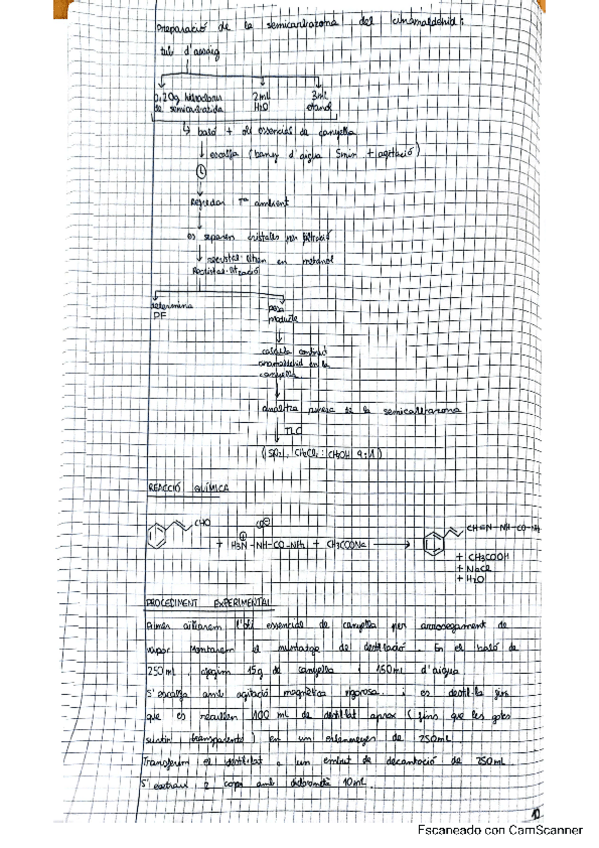 Preparació de la semicarbazona del cinamaldehid:
tub d'assaig
0,20g hidroclorur de semicarbazida
2ml H2O
3ml etanol
baló + oli essencial de canyella
escalfa (bany d'aigua 5min + agitació)
Refredar Tª ambient
es separen cristalls per filtració
recristal·litzen en metanol
Recristal·lització
determina PF
pesa producte
calcula contingut cinamaldehid en la canyella
analitza puresa de la semicarbazona
TLC
(SiO2, CH2Cl2 : CH3OH 9:1)
REACCIÓ QUÍMICA
CHO
Cl⊖
+ H3N-NH-CO-NH2 + CH3COONa
CH=N-NH-CO-NH2
+ CH3COOH
+ NaCl
+ H2O
PROCEDIMENT EXPERIMENTAL
Primer aïllarem l'oli essencial de canyella per arrossegament de
vapor. Montarem el muntatge del destil·lació. En el baló de
250ml, afegim 15g de canyella i 150ml d'aigua
S'escalfa amb agitació magnètica vigorosa i es destil·la fins
que es recullen 100 ml de destil·lat aprox (fins que les gotes
surtin transparents) en un erlenmeyer de 250ml.
Transferim el destil·lat a un embut de decantació de 250ml.
S'extrau 2 cops amb diclorometà 10ml.
Escaneado con CamScanner